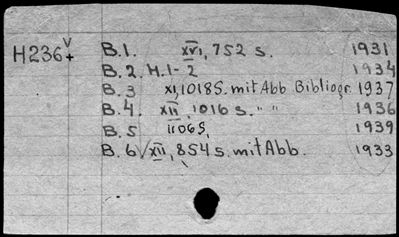 H236 V+ B.1. XVI, 752 s. 1931
B.2. H.1-2 1934
B.3 XI, 1018S. mit Abb Bibliogr. 1937
B.4. XII, 1016 s. " " 1936
B.5 1106S, 1939
B.6. √XII, 854 s. mit Abb. 1933